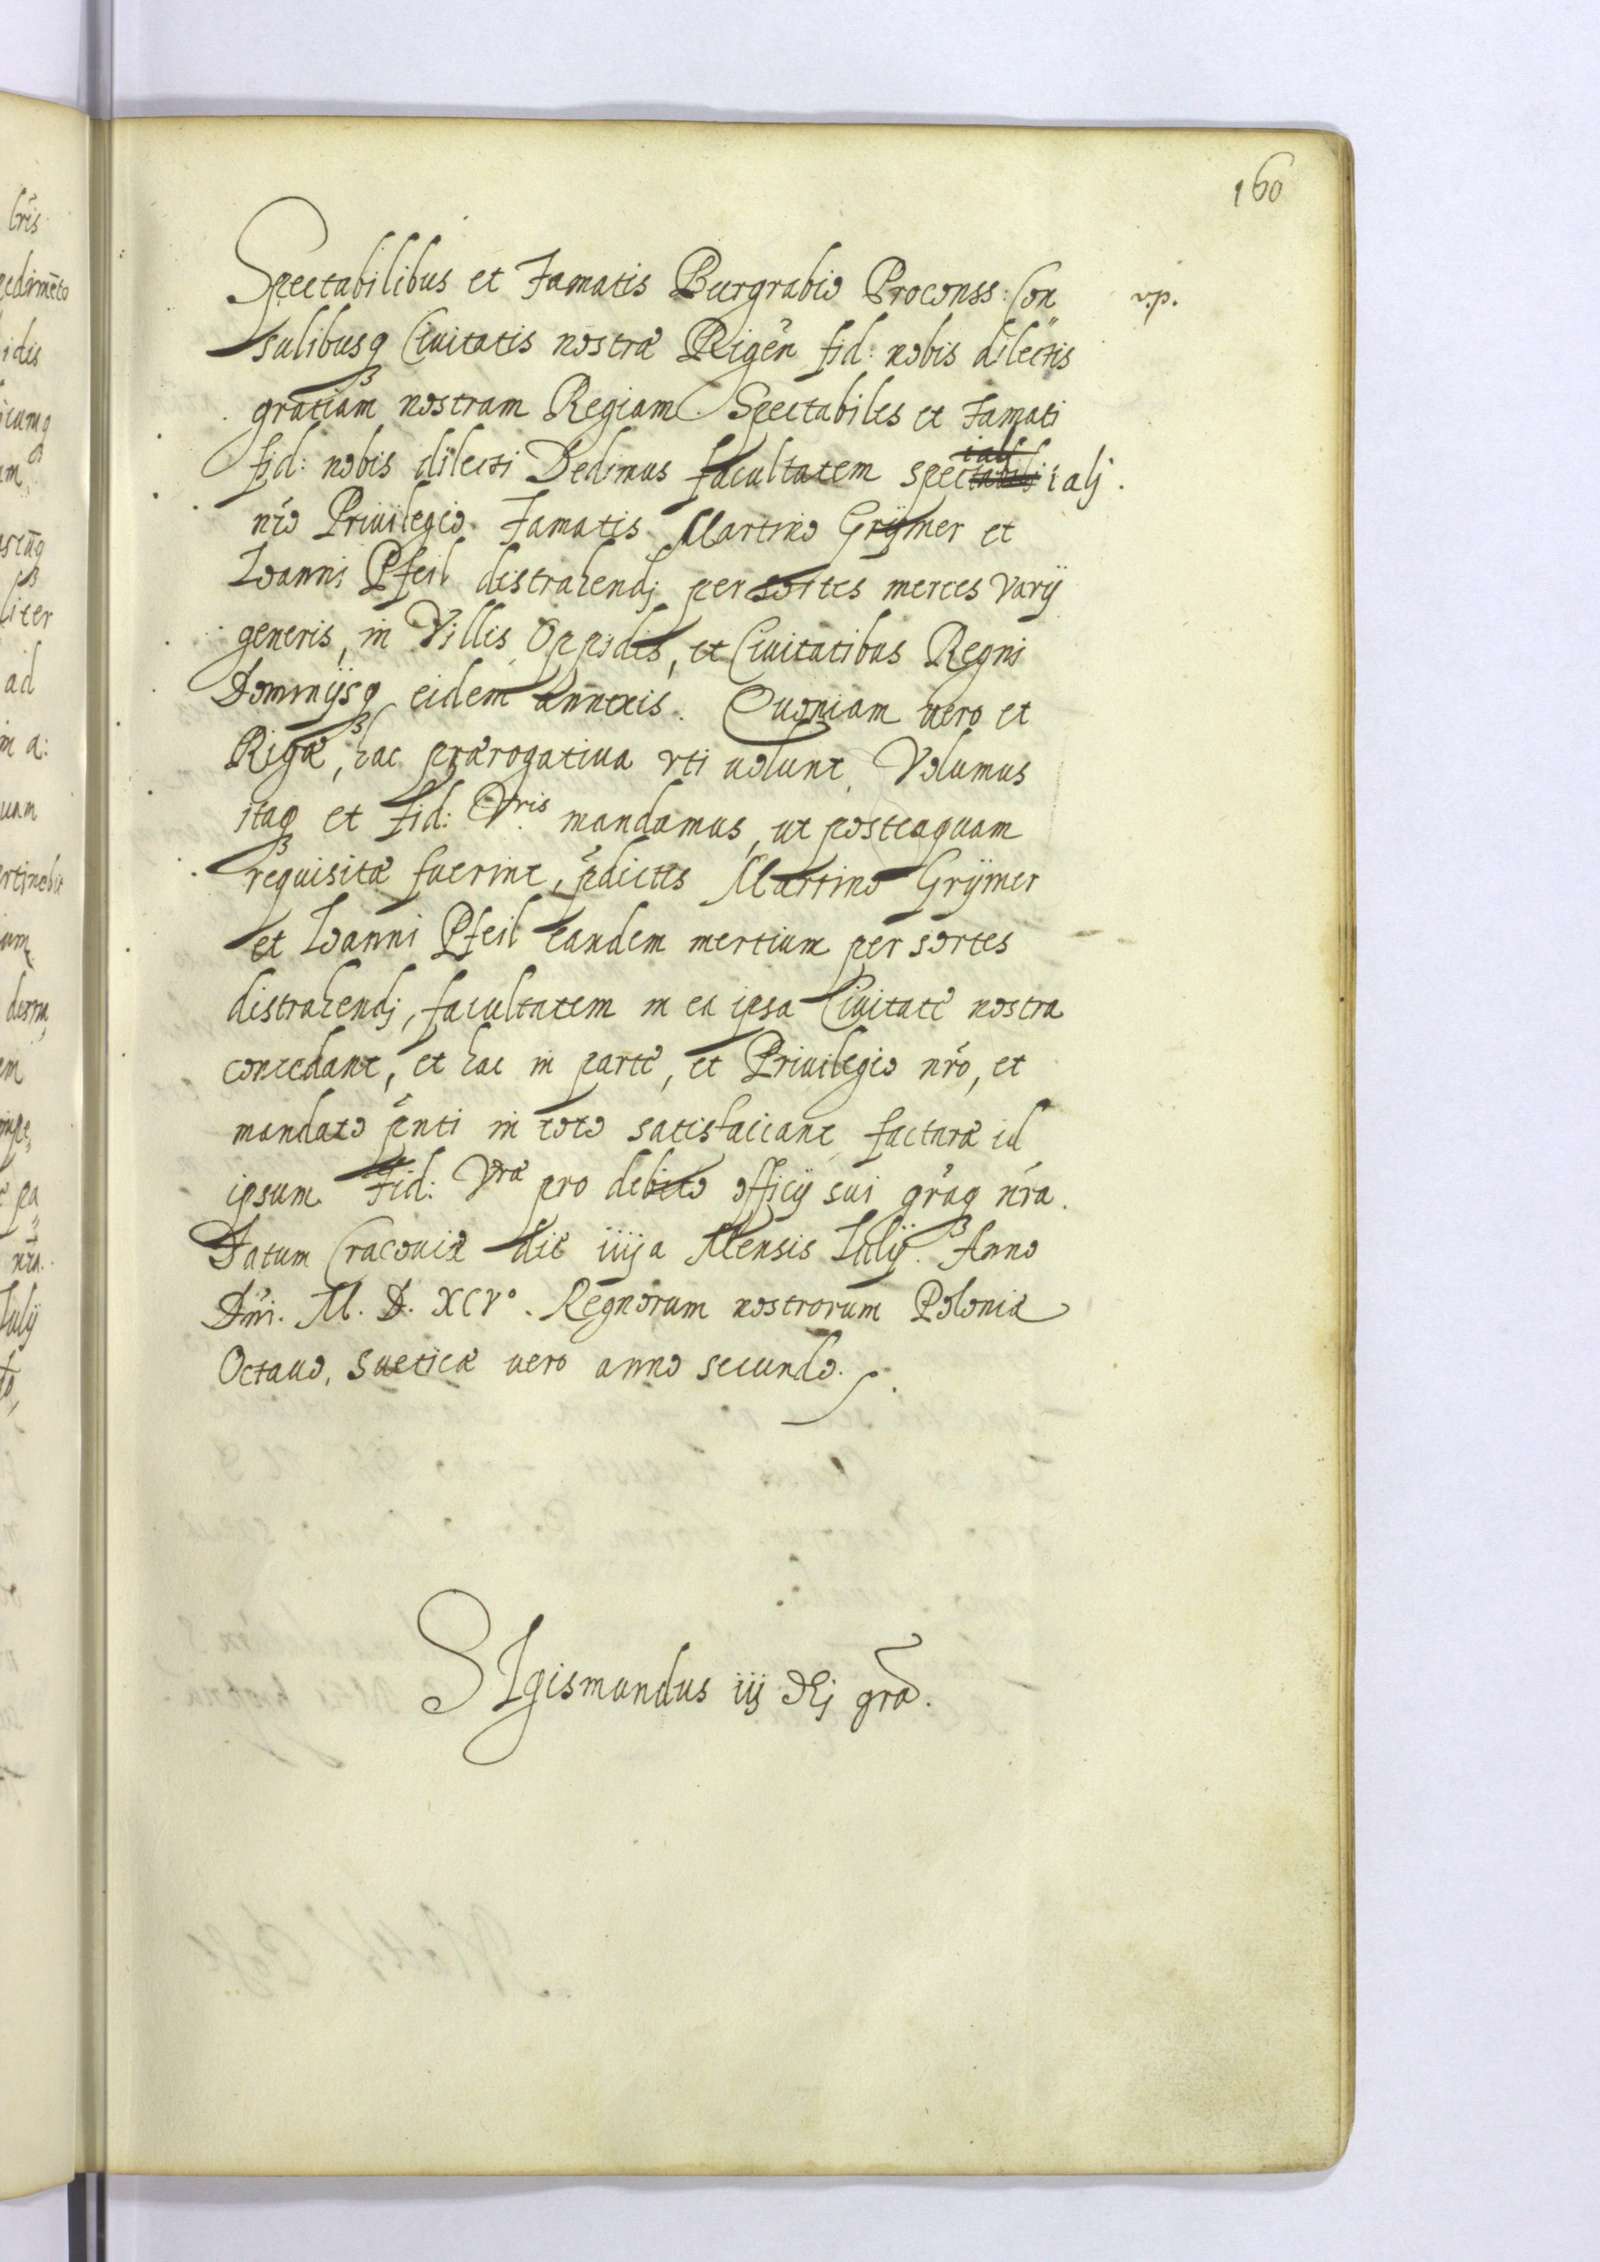 160
Spectabilibus et Famatis Burgrabio Proconss: Con
v.p.
sulibusq Ciuitatis nostræ Rigen̄ fid: nobis dilectis
gratiam nostram Regiam. Spectabiles et Famati
fid: nobis dilecti Dedimus facultatem spectabili ialj iali.
nr̄o Priuilegio. Famatis Martino Grÿmer et
Ioanni Pfeil distrahendj per sortes merces varij
generis, in Villis, Oppidis, et Ciuitatibus Regni
Dominijsq eidem annexis. Quoniam vero et
Rigæ, hac prærogatiua vti uolunt, Volumus
itaq et fid: Vris mandamus, ut posteaquam
requisitæ fuerint, p̄dictis Martino Grÿmer
et Ioanni Pfeil eandem mertium per sortes
distrahendj, facultatem in ea ipsa Ciuitate nostra
concedant, et hac in parte, et Priuilegio nr̄o, et
mandato p̄nti in toto satisfaciant facturæ id
ipsum Fid: Vræ pro debito officij sui gr̄aq nr̄a.
Datum Cracouiæ die iiija Mensis Iulij. Anno
Dn̄i. M. D. XCV°. Regnorum nostrorum Poloniæ
Octauo, Sueticæ uero anno secundo.
SIgismundus iij dEj gr̄a.